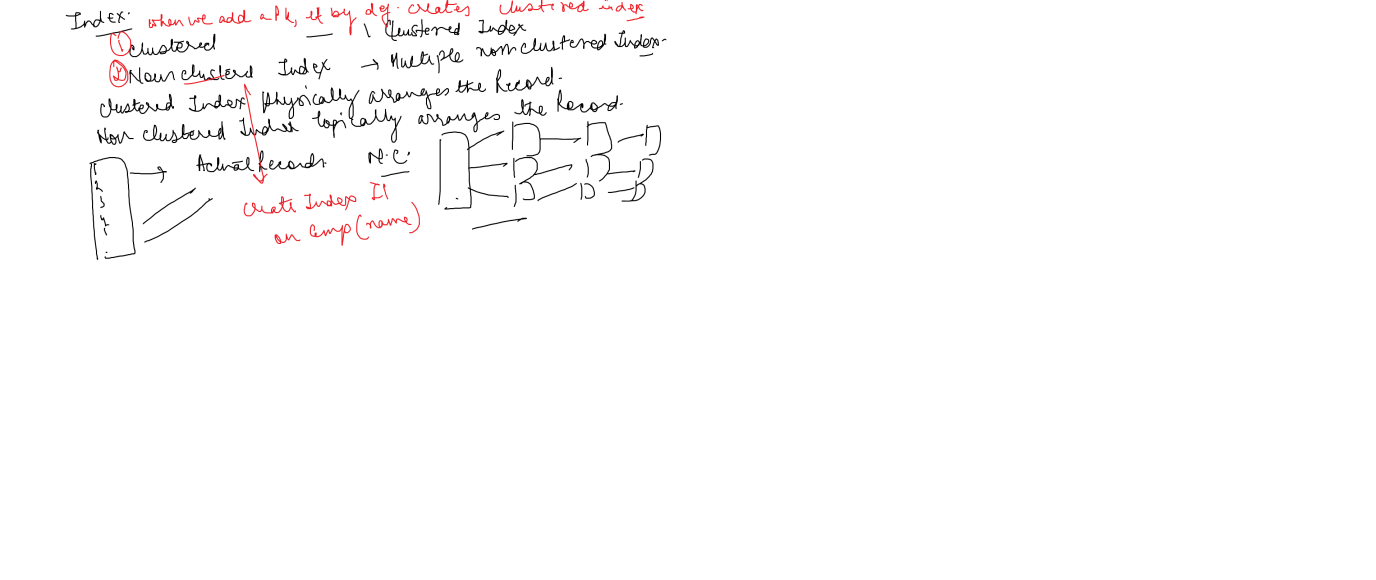 Index: when we add a Pk, it by def. creates clustered index
① Clustered 1 Clustered Index
② Non clusterd Index → Multiple non clustered Index.
Clustered Index physically arranges the Record.
Non clustered Index logically arranges the Record.
1 → Actual Records N.C.
2
3
4
Create Index I1
on emp(name)
D D D
D D D
D D D